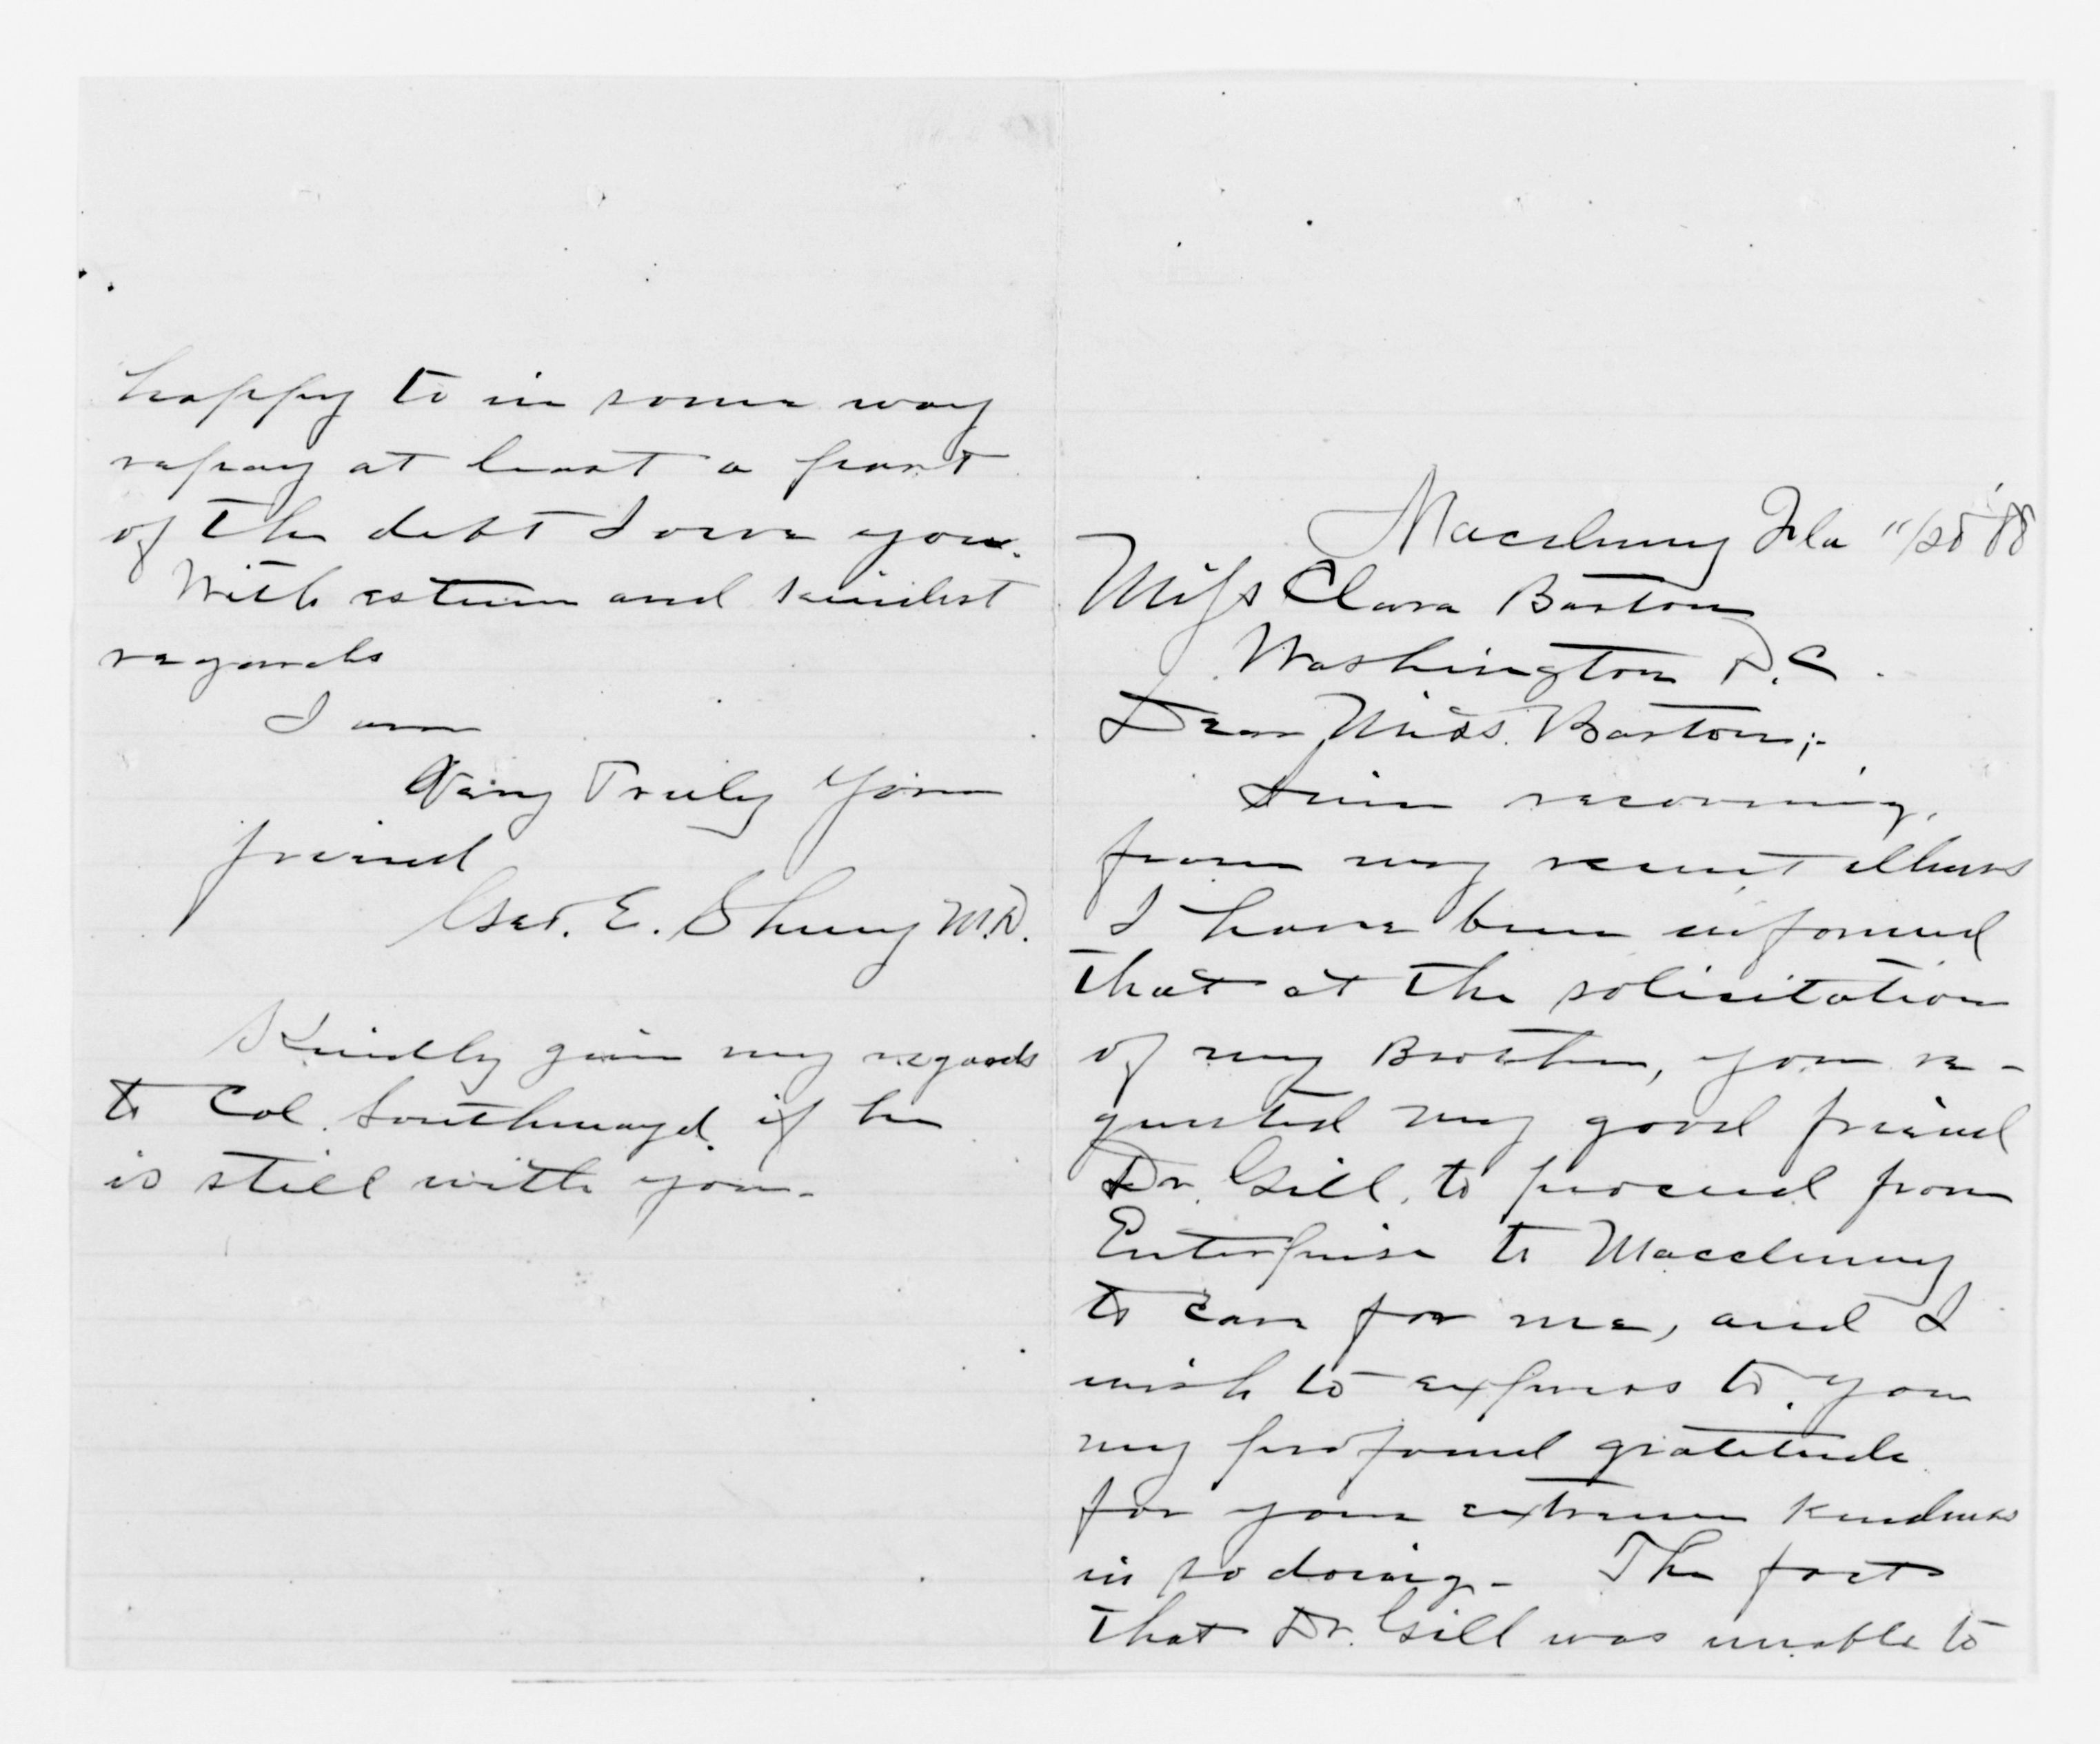 Macclenny Fla 11/28 '88
Miss Clara Barton
Washington D.C.
Dear Miss. Barton;-
Since recovering,
from my recent illness
I have been informed
that at the solicitation
of my Brother, you re-
quested my good friend
Dr. Gill, to proceed from
Enterprise to Macclenny
to care for me, and I
wish to express to you
my profound gratitude
for your extreme kindness
in so doing- The fact
that Dr. Gill was unable to
happy to in some way
repay at least a part
of the debt I owe you.
With esteem and kindest
regards
I am
Very Truly Your
friend
Geo. E. Shuey M.D.
Kindly give my regards
to Col. Southmayd. if he
is still with you-